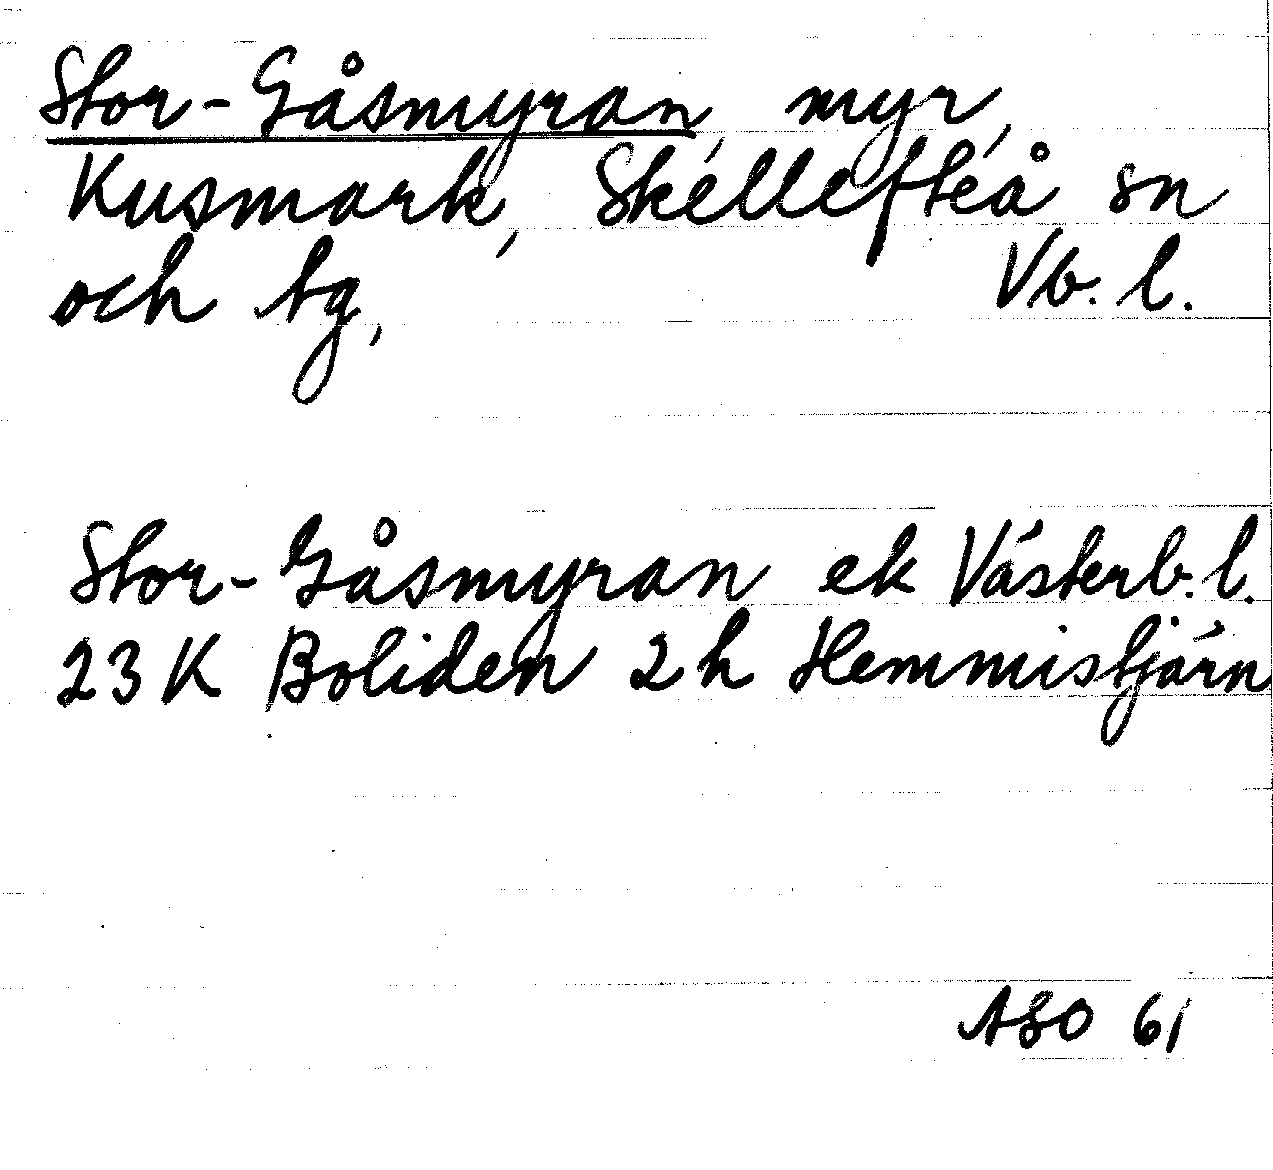 Stor-Gåsmyran, myr,
Kusmark, Skellefteå sn
och tg, Vb. l.
Stor-Gåsmyran ek Västerb. l.
23 K Boliden 2 h Hemmistjärn
ASO 61